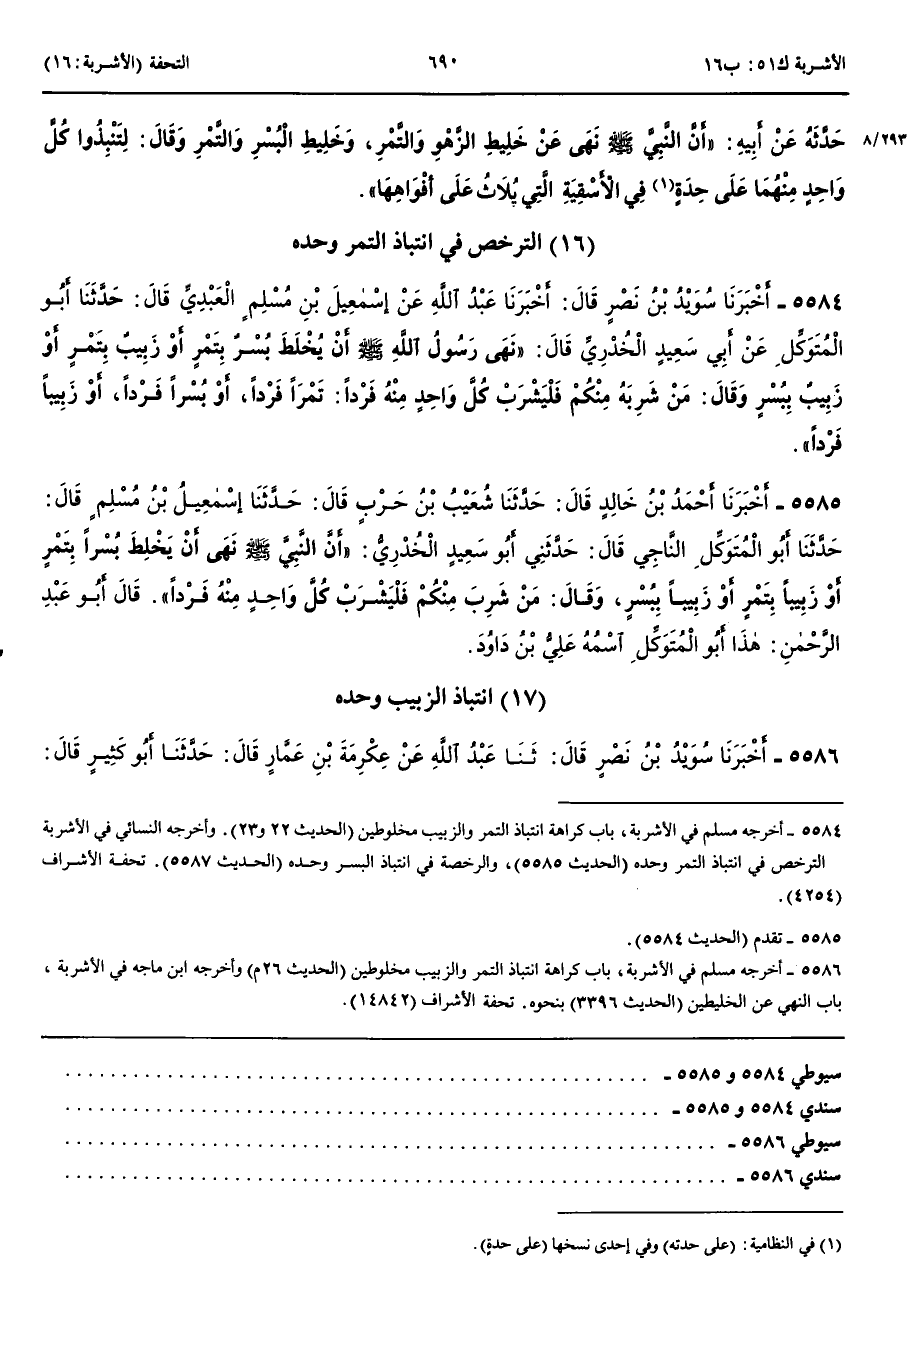 الأشربة ك٥١: ب١٦ ٦٩٠ التحفة (الأشربة: ١٦)
٨/٢٩٣ حَدَّثَهُ عَنْ أَبِيهِ: «أَنَّ النَّبِيَّ ﷺ نَهَى عَنْ خَلِيطِ الزَّهْوِ وَالتَّمْرِ، وَخَلِيطِ الْبُسْرِ وَالتَّمْرِ وَقَالَ: لِتَنْبِذُوا كُلَّ
وَاحِدٍ مِنْهُمَا عَلَى حِدَةٍ(١) فِي الْأَسْقِيَةِ الَّتِي يُلَاثُ عَلَى أَفْوَاهِهَا».
(١٦) الترخص في انتباذ التمر وحده
٥٥٨٤ ـ أَخْبَرَنَا سُوَيْدُ بْنُ نَصْرٍ قَالَ: أَخْبَرَنَا عَبْدُ ٱللَّهِ عَنْ إِسْمٰعِيلَ بْنِ مُسْلِمٍ الْعَبْدِيِّ قَالَ: حَدَّثَنَا أَبُو
الْمُتَوَكِّلِ عَنْ أَبِي سَعِيدٍ الْخُدْرِيِّ قَالَ: «نَهَى رَسُولُ ٱللَّهِ ﷺ أَنْ يُخْلَطَ بُسْرٌ بِتَمْرٍ أَوْ زَبِيبٌ بِتَمْرٍ أَوْ
زَبِيبٌ بِبُسْرٍ وَقَالَ: مَنْ شَرِبَهُ مِنْكُمْ فَلْيَشْرَبْ كُلَّ وَاحِدٍ مِنْهُ فَرْداً: تَمْرَاً فَرْداً، أَوْ بُسْراً فَرْداً، أَوْ زَبِيباً
فَرْداً».
٥٥٨٥ ـ أَخْبَرَنَا أَحْمَدُ بْنُ خَالِدٍ قَالَ: حَدَّثَنَا شُعَيْبُ بْنُ حَرْبٍ قَالَ: حَدَّثَنَا إِسْمٰعِيلُ بْنُ مُسْلِمٍ قَالَ:
حَدَّثَنَا أَبُو الْمُتَوَكِّلِ النَّاجِي قَالَ: حَدَّثَنِي أَبُو سَعِيدٍ الْخُدْرِيُّ: «أَنَّ النَّبِيَّ ﷺ نَهَى أَنْ يَخْلِطَ بُسْراً بِتَمْرٍ
أَوْ زَبِيباً بِتَمْرٍ أَوْ زَبِيباً بِبُسْرٍ، وَقَالَ: مَنْ شَرِبَ مِنْكُمْ فَلْيَشْرَبْ كُلَّ وَاحِدٍ مِنْهُ فَرْداً». قَالَ أَبُو عَبْدِ
الرَّحْمٰنِ: هٰذَا أَبُو الْمُتَوَكِّلِ ٱسْمُهُ عَلِيُّ بْنُ دَاوُدَ.
(١٧) انتباذ الزبيب وحده
٥٥٨٦ ـ أَخْبَرَنَا سُوَيْدُ بْنُ نَصْرٍ قَالَ: ثَنَا عَبْدُ ٱللَّهِ عَنْ عِكْرِمَةَ بْنِ عَمَّارٍ قَالَ: حَدَّثَنَا أَبُو كَثِيرٍ قَالَ:
٥٥٨٤ ـ أخرجه مسلم في الأشربة، باب كراهة انتباذ التمر والزبيب مخلوطين (الحديث ٢٢ و٢٣). وأخرجه النسائي في الأشربة
الترخص في انتباذ التمر وحده (الحديث ٥٥٨٥)، والرخصة في انتباذ البسر وحده (الحديث ٥٥٨٧). تحفة الأشراف
(٤٢٥٤).
٥٥٨٥ ـ تقدم (الحديث ٥٥٨٤).
٥٥٨٦ ـ أخرجه مسلم في الأشربة، باب كراهة انتباذ التمر والزبيب مخلوطين (الحديث ٢٦م) وأخرجه ابن ماجه في الأشربة،
باب النهي عن الخليطين (الحديث ٣٣٩٦) بنحوه. تحفة الأشراف (١٤٨٤٢).
سيوطي ٥٥٨٤ و ٥٥٨٥ ـ ........................................
سندي ٥٥٨٤ و ٥٥٨٥ ـ ........................................
سيوطي ٥٥٨٦ ـ ........................................
سندي ٥٥٨٦ ـ ........................................
(١) في النظامية: (على حدته) وفي إحدى نسخها (على حدةٍ).